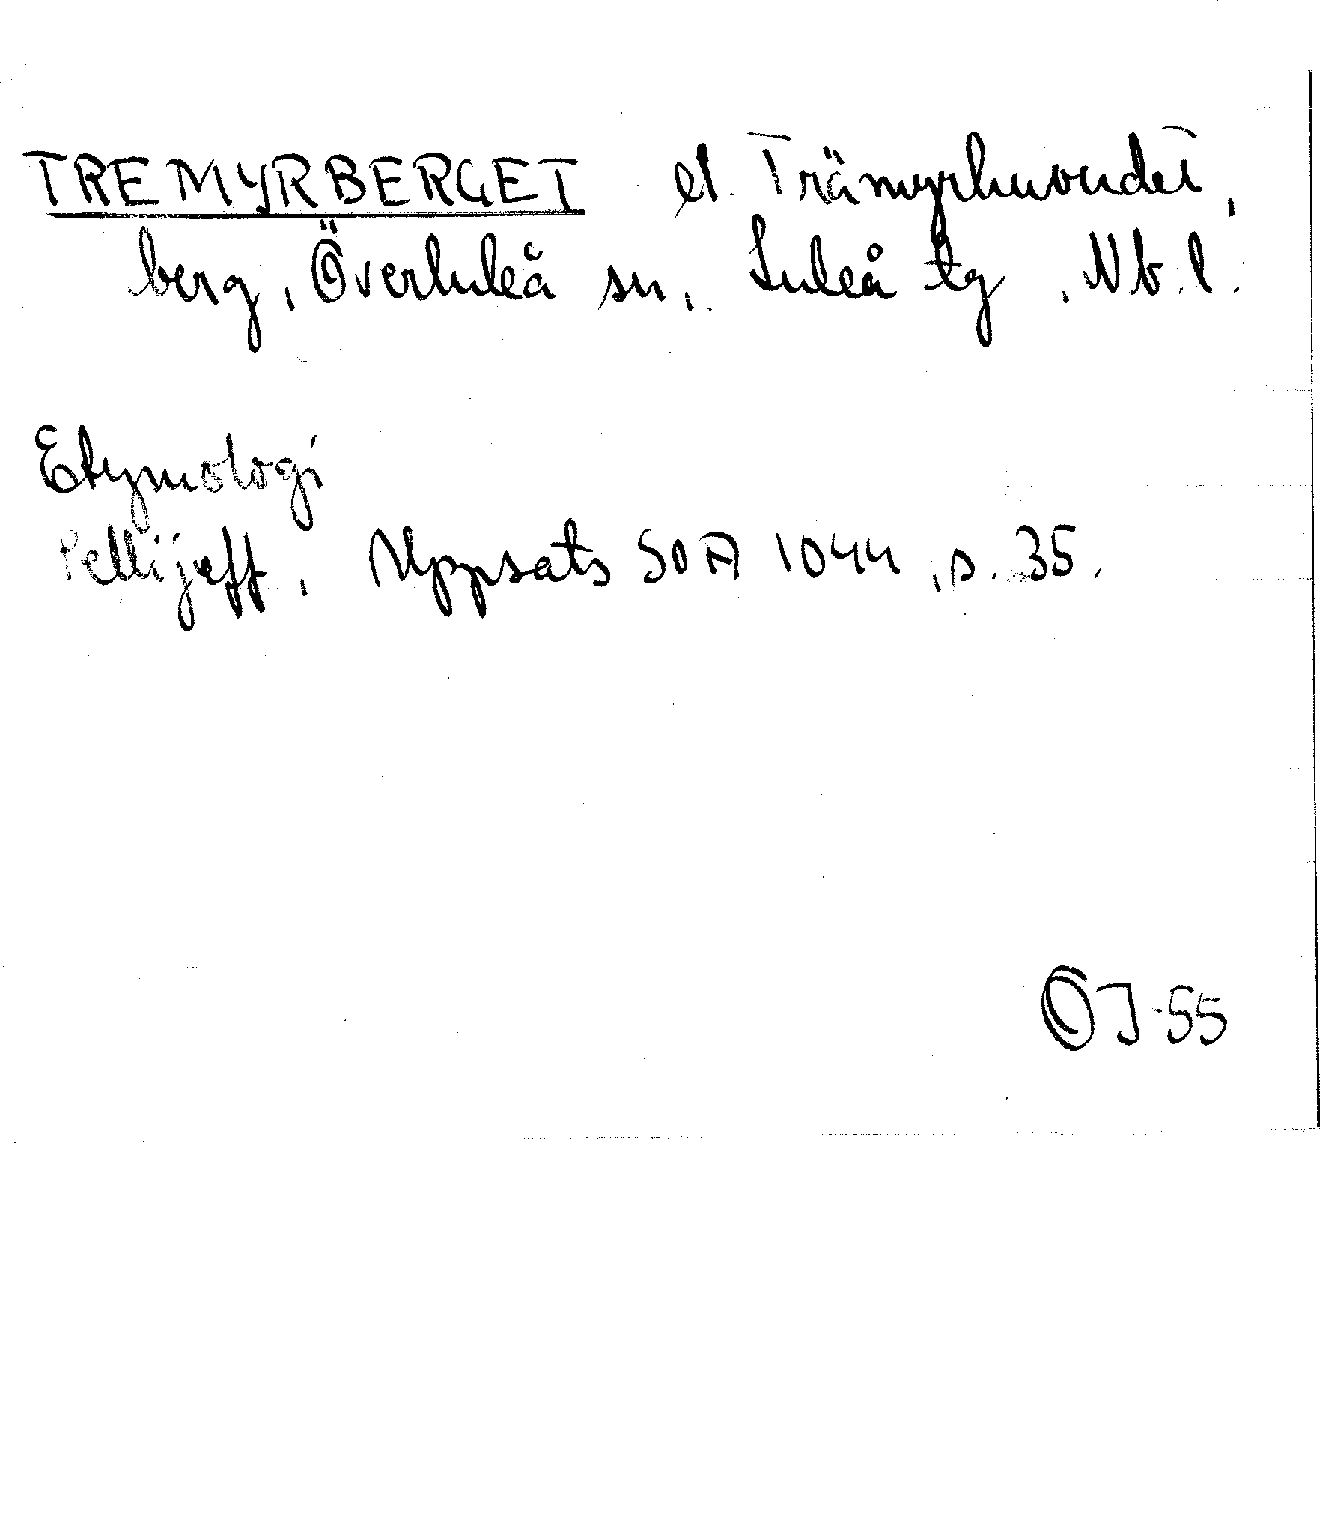 TREMYRBERGET el. Trämyrhuvudet,
berg, Överluleå sn, Luleå tg, Nb. l.
Etymologi
Pellijeff, Uppsats SOA 1044, s. 35.
ÖJ-55